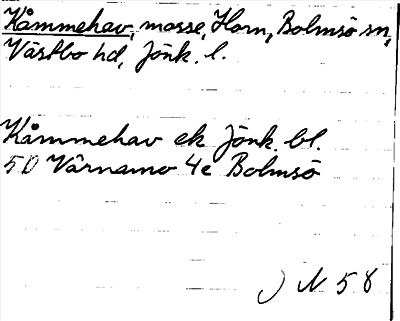 Kåmmehav, mosse, Horn, Bolmsö sn,
Västbo hd, Jönk. l.
Kåmmehav ek Jönk. bl.
5D Värnamo 4e Bolmsö
N 58